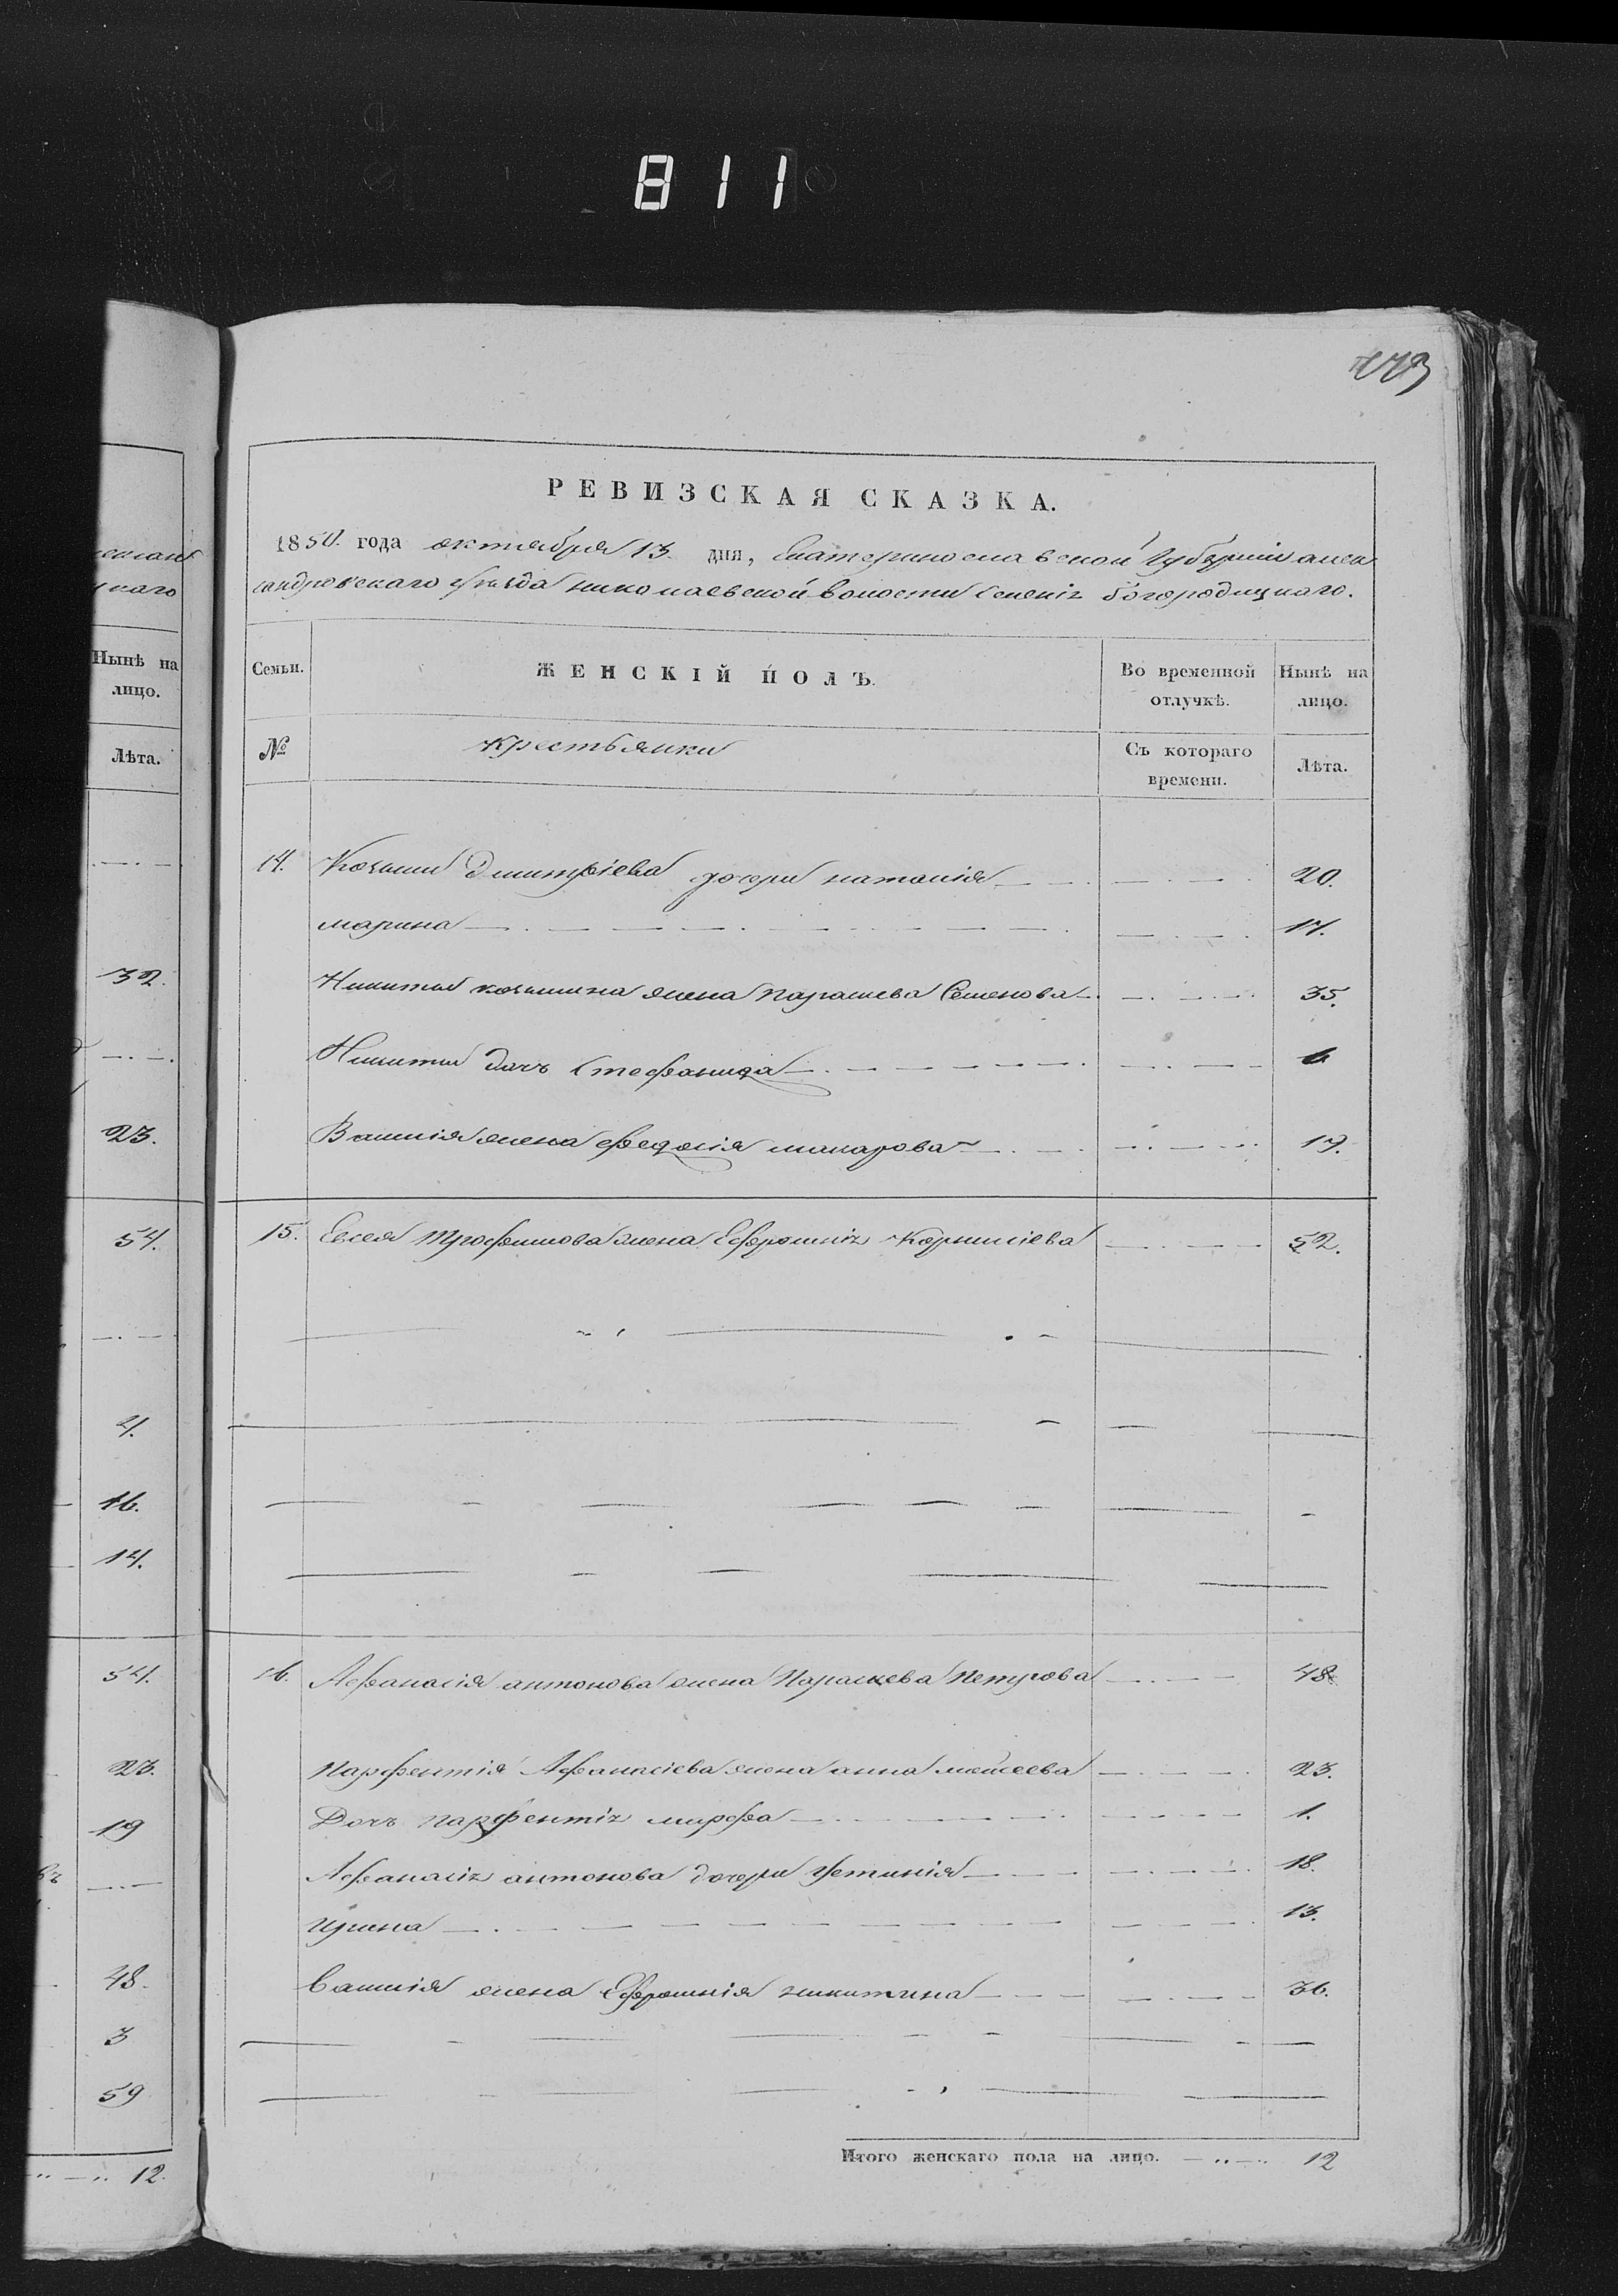 811
РЕВИЗСКАЯ СКАЗКА.
1850. года октября 13. дня, Екатеринославской Губернии алек
сандровскаго уѣзда николаевской волости селенія богородицкаго.
Нынѣ на лицо.
Лѣта.
32.
23.
54.
4.
16.
14.
54.
23.
19
48.
3
59
12.
Семьи. ЖЕНСКІЙ ПОЛЪ. Во временной отлучкѣ. Нынѣ на лицо.
№ крестьянки Съ котораго времени. Лѣта.
14. Козьмы Дмитріева дочери наталія 20.
марина 17.
Никиты козьмина жена параскева Семенова 35.
Никиты дочь Стефанида 6
Василія жена федосія макарова 19.
15. Евсея Трофимова жена Ефросинія Корнилієва 52.
16. Афанасія антонова жена Параскева Петрова 48
Парфентія Афанасіева жена анна моисеева 23.
Дочь парфентія марфа 1.
Афанасія антонова дочери Фетинія 18.
ирина 13.
Василія жена Ефросинія никитина 36.
Итого женскаго пола на лицо. 12